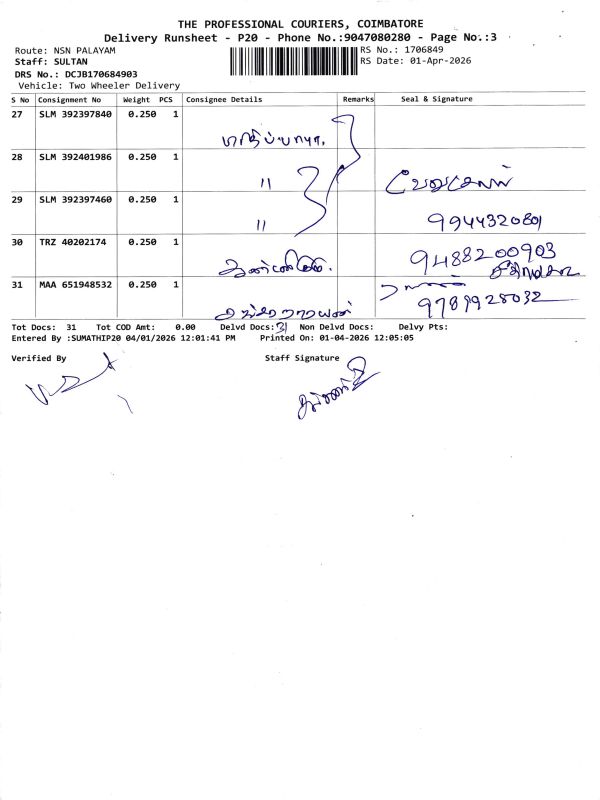 THE PROFESSIONAL COURIERS, COIMBATORE
Delivery Runsheet - P20 - Phone No.:9047080280 - Page No.:3
Route: NSN PALAYAM
RS No.: 1706849
Staff: SULTAN
RS Date: 01-Apr-2026
DRS No.: DCJB170684903
Vehicle: Two Wheeler Delivery
S No Consignment No Weight PCS Consignee Details Remarks Seal & Signature
27 SLM 392397840 0.250 1
28 SLM 392401986 0.250 1 "
29 SLM 392397460 0.250 1 " 9944320801
30 TRZ 40202174 0.250 1 9488200903
31 MAA 651948532 0.250 1 9789928032
Tot Docs: 31 Tot COD Amt: 0.00 Delvd Docs: 31 Non Delvd Docs: Delvy Pts:
Entered By :SUMATHIP20 04/01/2026 12:01:41 PM Printed On: 01-04-2026 12:05:05
Verified By Staff Signature